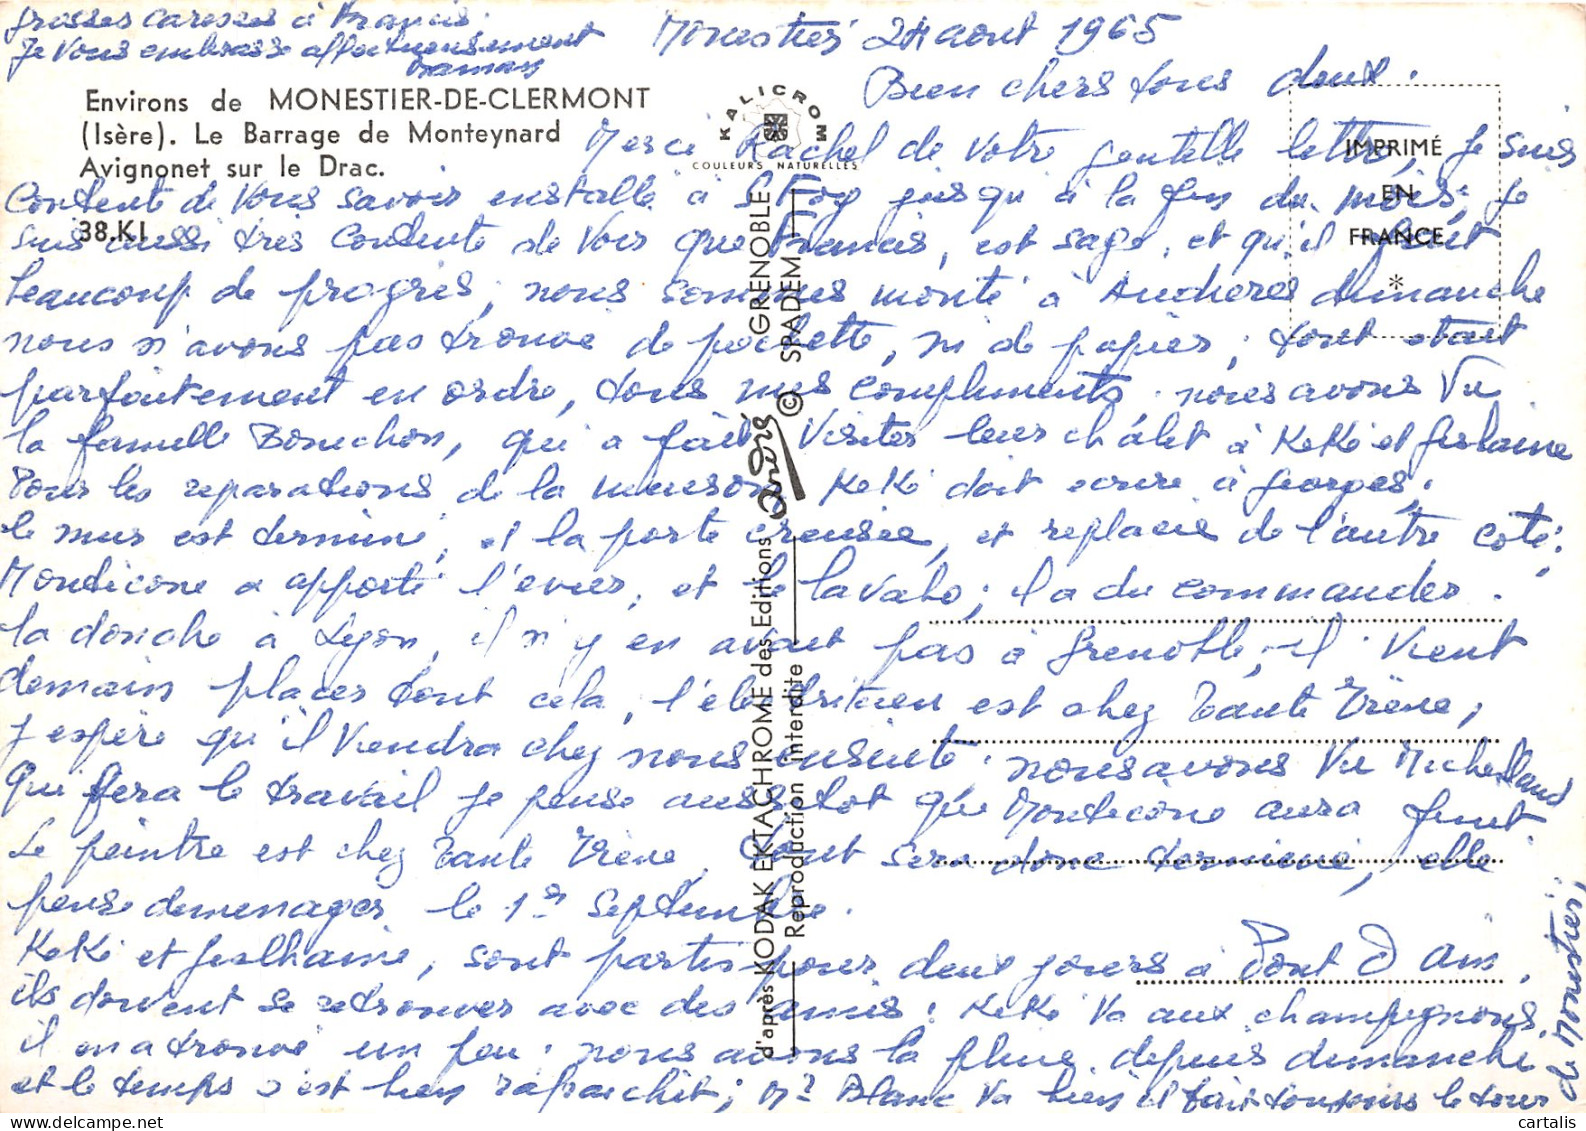 Monestier 24 aout 1965
Bien chers tous deux.
Merci Rachel de votre gentille lettre, je suis
contente de vous savoir installé à St Foy jusqu'à la fin du mois; je
suis aussi très contente de voir que Francis, est sage, et qu'il fait
beaucoup de progrès; nous sommes monté à Andieres dimanche
nous n'avons pas trouvé de pochette, ni de papier; tout était
parfaitement en ordre, tous mes compliments. nous avons vu
la famille Bonichon, qui a fait visiter leur châlet à KeKé et Gislaine
Pour les reparations de la maison KeKé doit ecrire à Georges.
le mur est terminé, et la porte creusée, et replacée de l'autre coté;
Monticone a apporté l'evier, et le lavabo; il a du commander.
la douche à Lyon, il n'y en avait pas à Grenoble, il vient
demain placer tout cela, l'electricien est chez Tante Irène,
j'espère qu'il viendra chez nous ensuite. nous avons vu Micheland
qui fera le travail je pense aussitot que Monticone aura finit.
Le peintre est chez Tante Irène, tout sera donc terminé, elle
pense demenager le 1er Septembre.
KeKé et Gislhaine, sont partis pour deux jours à Pont D'Ain,
ils doivent se retrouver avec des amis; KeKé va aux champignons,
il en a trouvé un peu; nous avons la pluie depuis dimanche
et le temps s'est bien rafraichit; Mr Blanc va bien il fait toujours le tour
de Monestier,
Grosses caresses à Francis.
Je vous embrasse affectueusement
Maman
Environs de MONESTIER-DE-CLERMONT
(Isère). Le Barrage de Monteynard
Avignonet sur le Drac.
38.KI
KALICROM
COULEURS NATURELLES
IMPRIMÉ
EN
FRANCE
*
d'après KODAK EKTACHROME des Editions André GRENOBLE
Reproduction interdite © SPADEM
cartalis